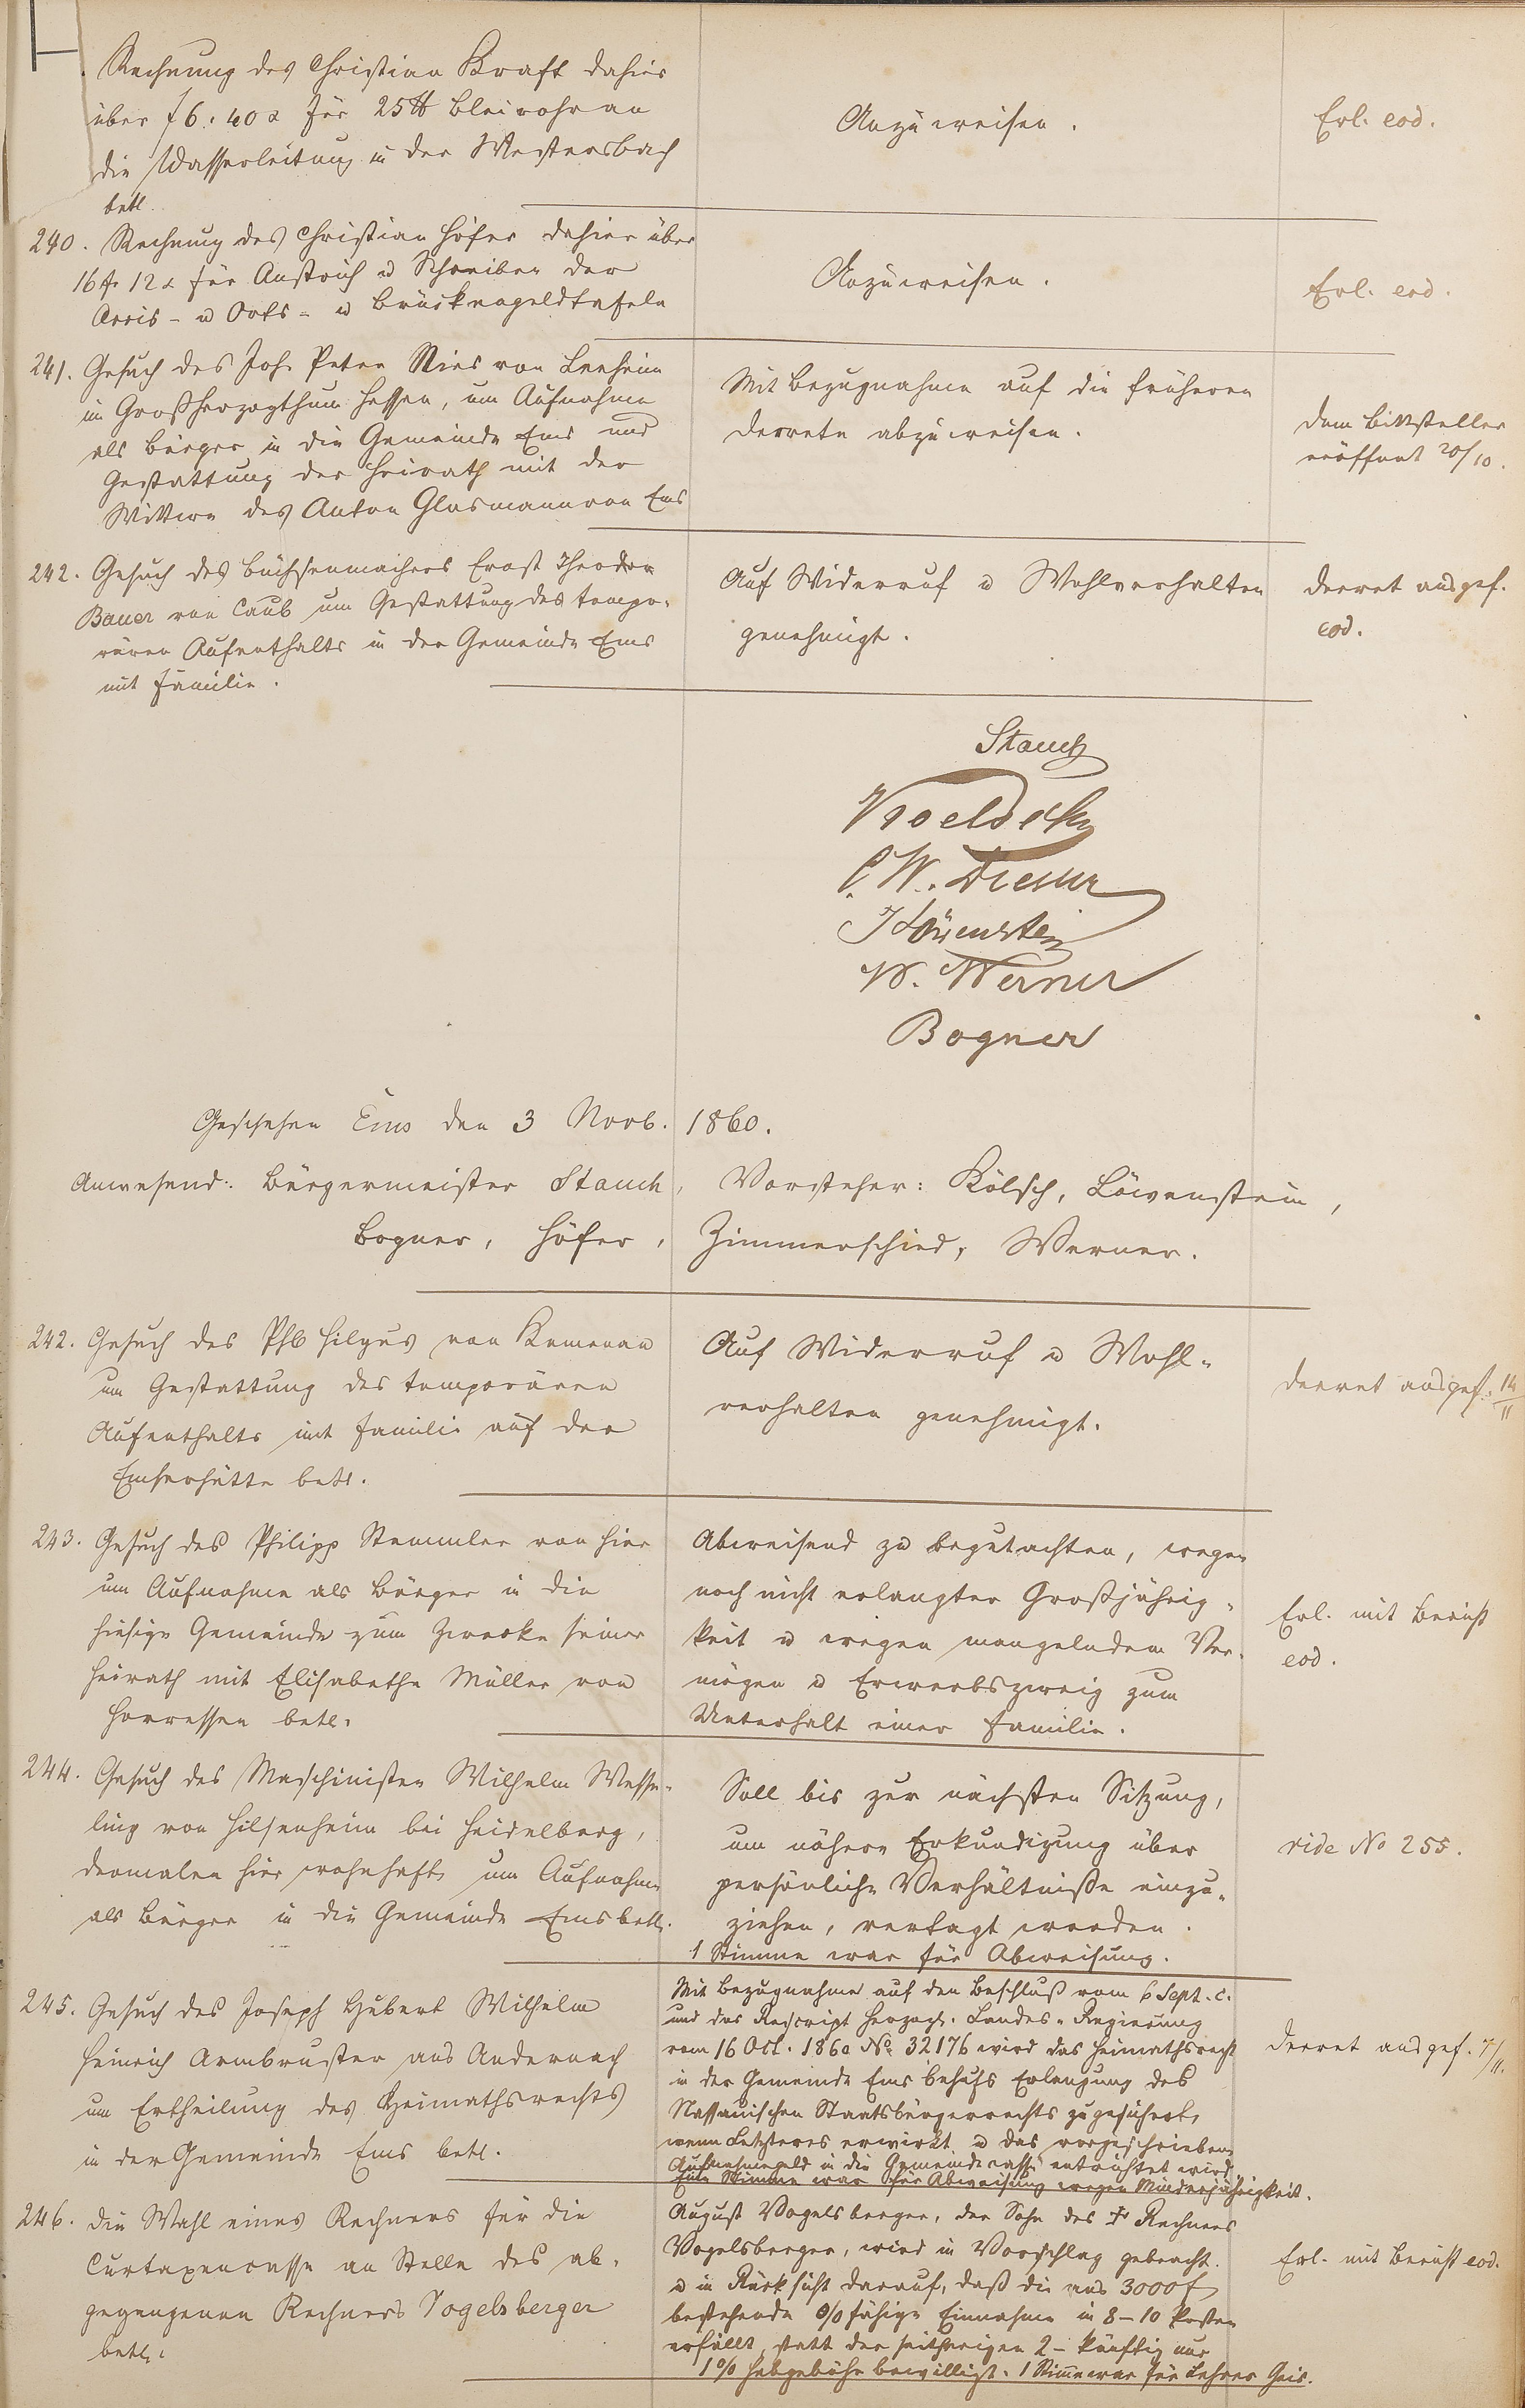 Rechnung des Christian Kraft dahier
über f 6. 40 x für 25 ℔ Bleirohr an
die Wasserleitung in der Westersbach
betl.
Anzuweisen.
Erl. eod.
240. Rechnung des Christian Höfer dahier über
16 fr 12 x für Anstrich u Schreiben der
Accis- u Orts- u Brückengeldtafeln
Anzuweisen.
Erl. eod.
241. Gesuch des Joh. Peter Nies von Leeheim
im Großherzogthum Hessen, um Aufnahme
als Bürger in die Gemeinde Ems und
Gestattung der Heirath mit der
Wittwe des Anton Glasmann von Ems
Mit Bezugnahme auf die früheren
Decrete abzuweisen.
Dem Bittsteller
eröffnet 20/10.
242. Gesuch des Büchsenmachers Ernst Theodor
Bauer von Caub um Gestattung des tempo-
rären Aufenthalts in der Gemeinde Ems
mit Familie.
Auf Widerruf u Wohlverhalten
genehmigt.
Decret ausgef.
eod.
Stauch
C. W.
J Löwenstein
W. Werner
Bogner
Geschehen Ems den 3 Novb. 1860.
Anwesend: Bürgermeister Stauch, Vorsteher: Kölsch, Löwenstein,
Bogner, Höfer, Zimmerschied, Werner.
242. Gesuch des Phb Hilgus von Kemenau
um Gestattung des temporären
Aufenthalts mit Familie auf der
Emserhütte betl.
Auf Widerruf u Wohl-
verhalten genehmigt.
Decret ausgef. 14/11
243. Gesuch des Philipp Stemmler von hier
um Aufnahme als Bürger in die
hiesige Gemeinde zum Zwecke seiner
Heirath mit Elisabethe Müller von
Horressen betl.
Abweisend zu begutachten, wegen
noch nicht erlangter Großjährig-
keit u wegen mangelndem Ver-
mögen u Erwerbszweig zum
Unterhalt einer Familie.
Erl. mit Bericht
eod.
244. Gesuch des Maschinisten Wilhelm Wesse-
ling von Hilsenheim bei Heidelberg,
dermalen hier wohnhaft, um Aufnahme
als Bürger in die Gemeinde Ems betl.
Soll bis zur nächsten Sitzung,
um nähere Erkundigung über
persönliche Verhältniße einzu-
ziehen, vertagt werden.
1 Stimme war für Abweisung.
vide No 255.
245. Gesuch des Joseph Hubert Wilhelm
Heinrich Armbruster aus Andernach
um Ertheilung des Heimathsrechts
in der Gemeinde Ems betl.
Mit Bezugnahme auf den Beschluß vom 6 Sept. c.
und das Rescript Herzogl. Landes-Regierung
vom 16 Oct. 1860 No 32176 wird das Heimathsrecht
in der Gemeinde Ems behufs Erlangung des
Nassauischen Staatsbürgerrechts zugesichert,
wenn Letzteres erwirkt u das vorgeschriebene
Aufnahmegeld in die Gemeindecasse entrichtet wird.
Eine Stimme war für Abweisung wegen Minderjährigkeit.
Decret ausgef. 7/11.
246. Die Wahl eines Rechners für die
Curtaxencasse an Stelle des ab-
gegangenen Rechners Vogelsberger
betl.
August Vogelsberger, der Sohn des † Rechners
Vogelsberger, wird in Vorschlag gebracht.
u in Rücksicht darauf, daß die aus 3000 f
bestehende %fähige Einnahme in 8-10 Posten
erfällt, statt der seitherigen 2- künftig nur
1% Hebgebühr bewilligt. 1 Stimme war für Lehrer Geis.
Erl. mit Bericht eod.